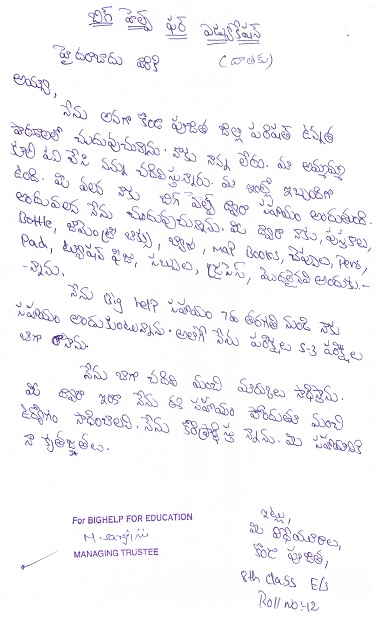 బిగ్ హెల్ప్ ఫర్ ఎడ్యుకేషన్
హైదరాబాదు వారికి (దాతకు)
అయ్యా,
నేను అనగా కొండా పూజిత జిల్లా పరిషత్ ఉన్నత
పాఠశాలలో చదువుచున్నాను. నాకు నాన్న లేరు. మా అమ్మమ్మ
కూలి పని చేసి నన్ను చదివిస్తున్నారు. మా ఇంట్లో ఇబ్బందిగా
ఉంది. మీ వలన నాకు బిగ్ హెల్ప్ ద్వారా సహాయం అందుతుంది.
అందువలన నేను చదువుచున్నాను. మీ ద్వారా నాకు, పుస్తకాలు,
Bottle, బ్యాగు, Map Books, చెప్పులు, Pens,
Pad, ట్యూషన్ ఫీజు, సబ్బులు, డ్రెస్, మొదలైనవి అందుకు-
-న్నాను.
నేను Big help సహాయం 7వ తరగతి నుండి నాకు
సహాయం అందుకుంటున్నాను. అలాగే నేను పరీక్షలు S-3 పరీక్షలు
బాగా రాసాను.
నేను బాగా చదివి మంచి మార్కులు సాధిస్తాను.
మీ ద్వారా ఇలా నేను ఈ సహాయం పొందుతూ మంచి
ఉద్యోగం సాధించాలని, నేను న్నాను. మీ సహాయానికి
నా కృతజ్ఞతలు.
For BIGHELP FOR EDUCATION
MANAGING TRUSTEE
ఇట్లు,
మీ విధేయురాలు,
కొండా పూజిత,
8th class E/s
Roll no:-12